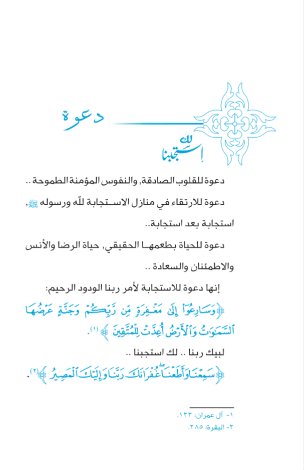 دعوة
لك
استجبنا
دعوة للقلوب الصادقة، والنفوس المؤمنة الطموحة ..
دعوة للارتقاء في منازل الاستجابة لله ورسوله ﷺ،
استجابة بعد استجابة..
دعوة للحياة بطعمها الحقيقي، حياة الرضا والأنس
والاطمئنان والسعادة ..
إنها دعوة للاستجابة لأمر ربنا الودود الرحيم:
﴿وَسَارِعُوٓا۟ إِلَىٰ مَغْفِرَةٍ مِّن رَّبِّكُمْ وَجَنَّةٍ عَرْضُهَا
ٱلسَّمَٰوَٰتُ وَٱلْأَرْضُ أُعِدَّتْ لِلْمُتَّقِينَ﴾(١).
لبيك ربنا .. لك استجبنا ..
﴿سَمِعْنَا وَأَطَعْنَا غُفْرَانَكَ رَبَّنَا وَإِلَيْكَ ٱلْمَصِيرُ﴾(٢).
١- آل عمران: ١٣٣.
٢- البقرة: ٢٨٥.